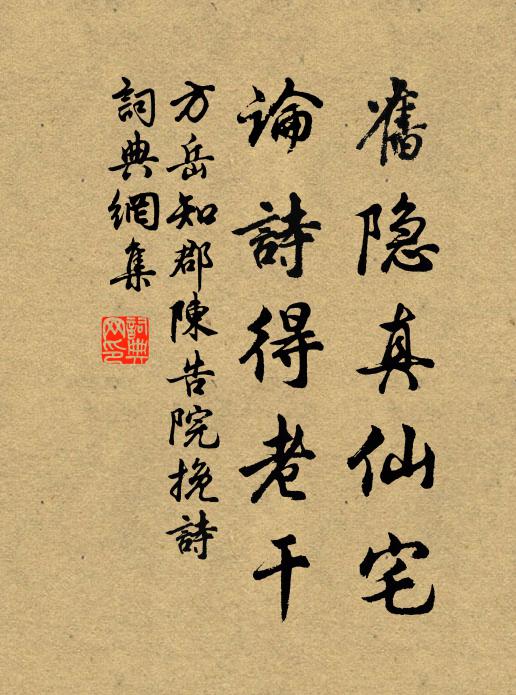 舊隐真仙宅
論詩得老干
方岳知郡陳告院挽詩
詞典網集
詞典网印